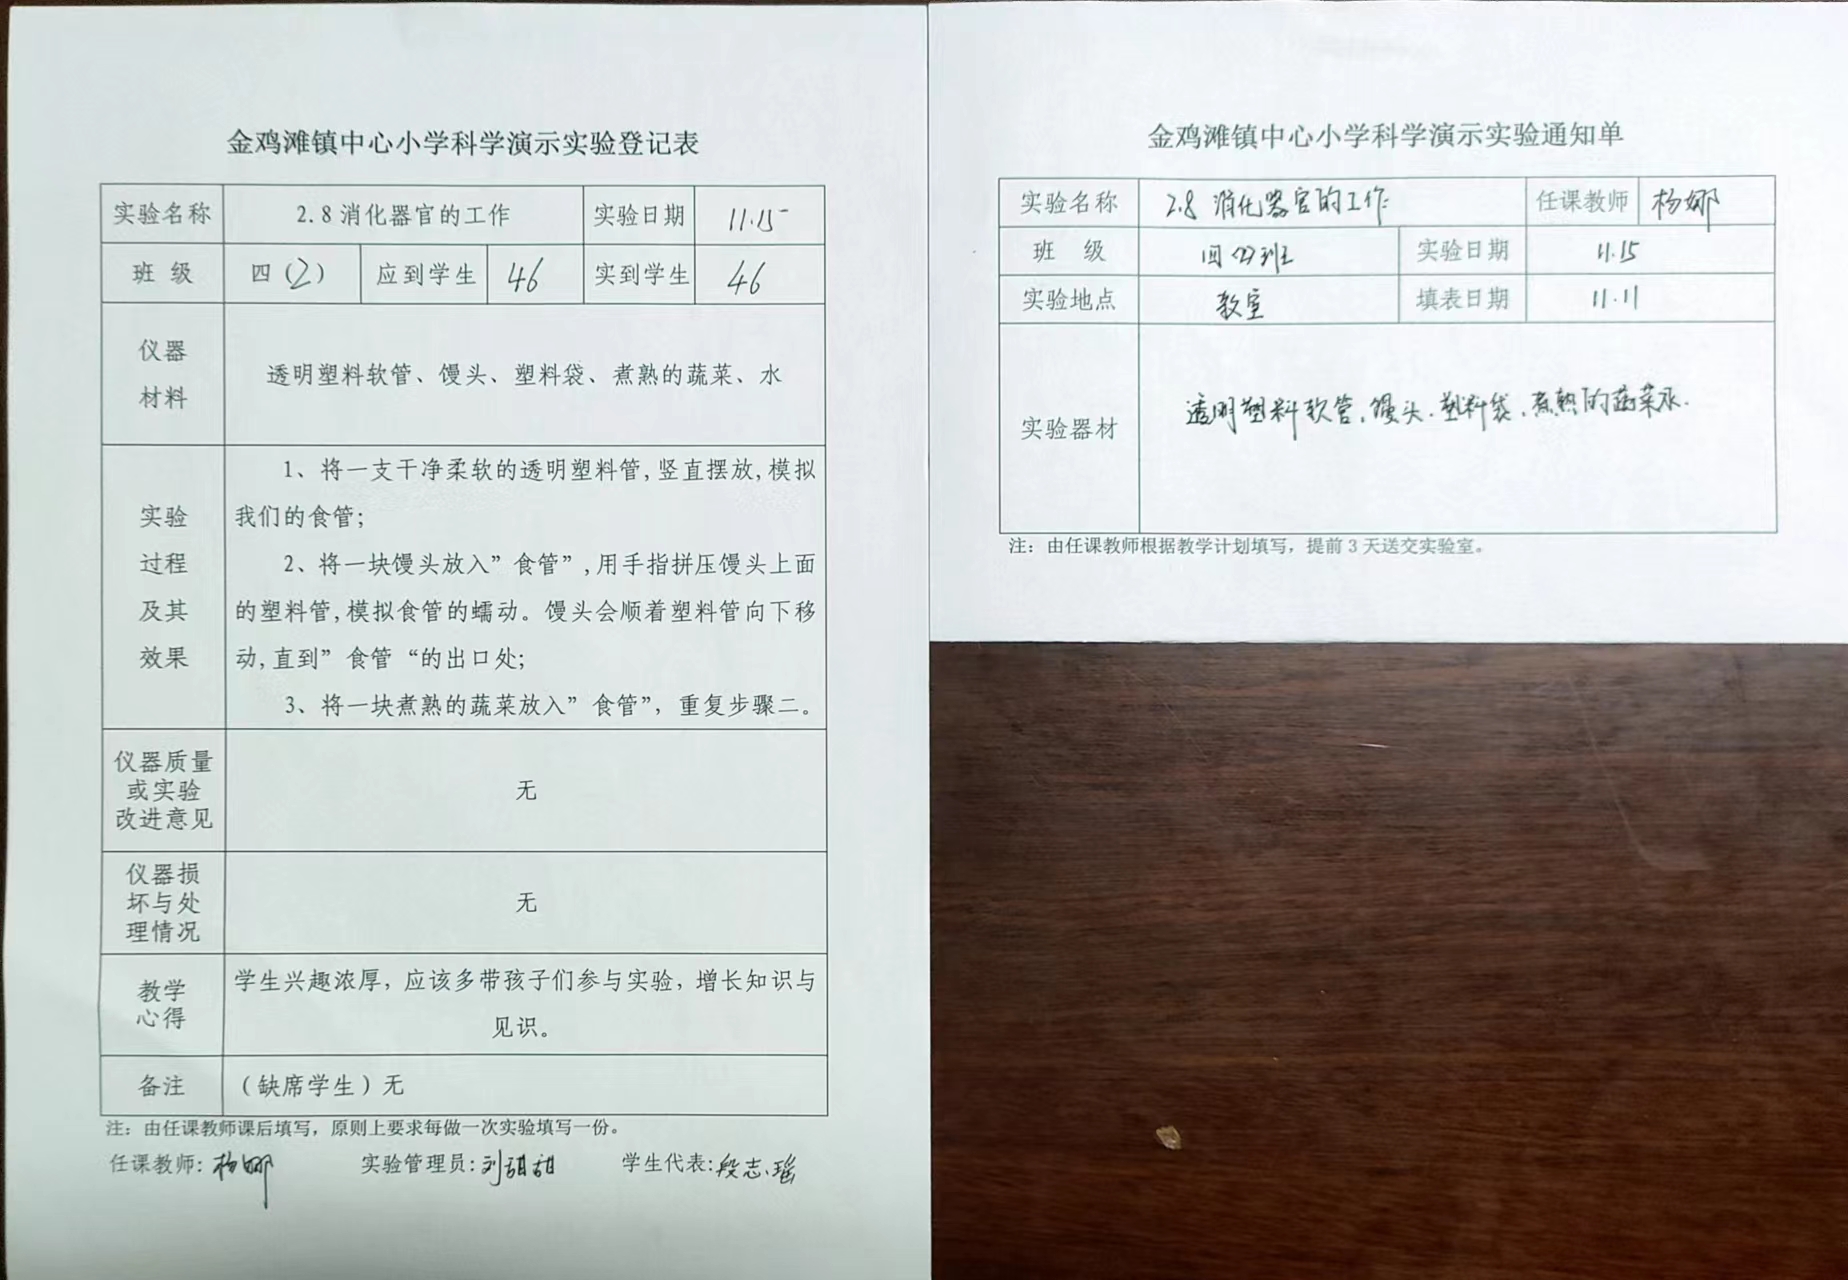 金鸡滩镇中心小学科学演示实验登记表
实验名称 2.8消化器官的工作 实验日期 11.15
班 级 四（2） 应到学生 46 实到学生 46
仪器
材料
透明塑料软管、馒头、塑料袋、煮熟的蔬菜、水
实验
过程
及其
效果
1、将一支干净柔软的透明塑料管,竖直摆放,模拟
我们的食管;
2、将一块馒头放入”食管”,用手指拼压馒头上面
的塑料管,模拟食管的蠕动。馒头会顺着塑料管向下移
动,直到”食管“的出口处;
3、将一块煮熟的蔬菜放入”食管”，重复步骤二。
仪器质量
或实验
改进意见
无
仪器损
坏与处
理情况
无
教学
心得
学生兴趣浓厚，应该多带孩子们参与实验，增长知识与
见识。
备注 （缺席学生）无
注：由任课教师课后填写，原则上要求每做一次实验填写一份。
任课教师:杨娜 实验管理员:刘甜甜 学生代表:段志瑶
金鸡滩镇中心小学科学演示实验通知单
实验名称 2.8 消化器官的工作 任课教师 杨娜
班 级 四 班 实验日期 11.15
实验地点 教室 填表日期 11.11
实验器材
透明塑料软管、馒头、塑料袋、煮熟的蔬菜水.
注：由任课教师根据教学计划填写，提前3天送交实验室。